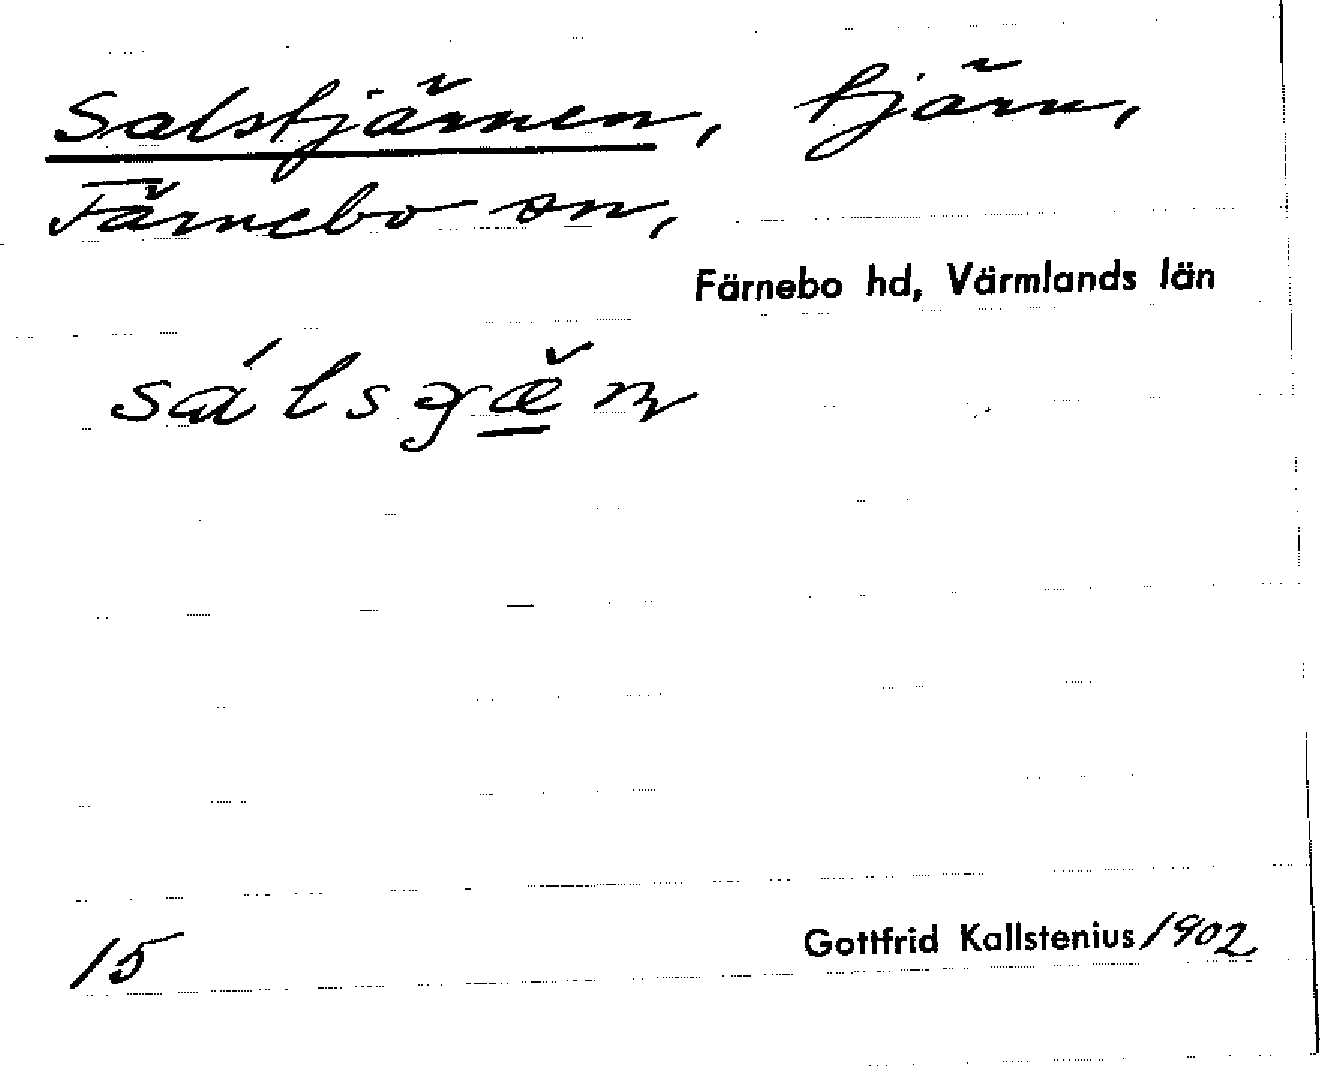 Salstjärnen, tjärn,
Färnebo sn,
Färnebo hd, Värmlands län
15
Gottfrid Kallstenius 1902